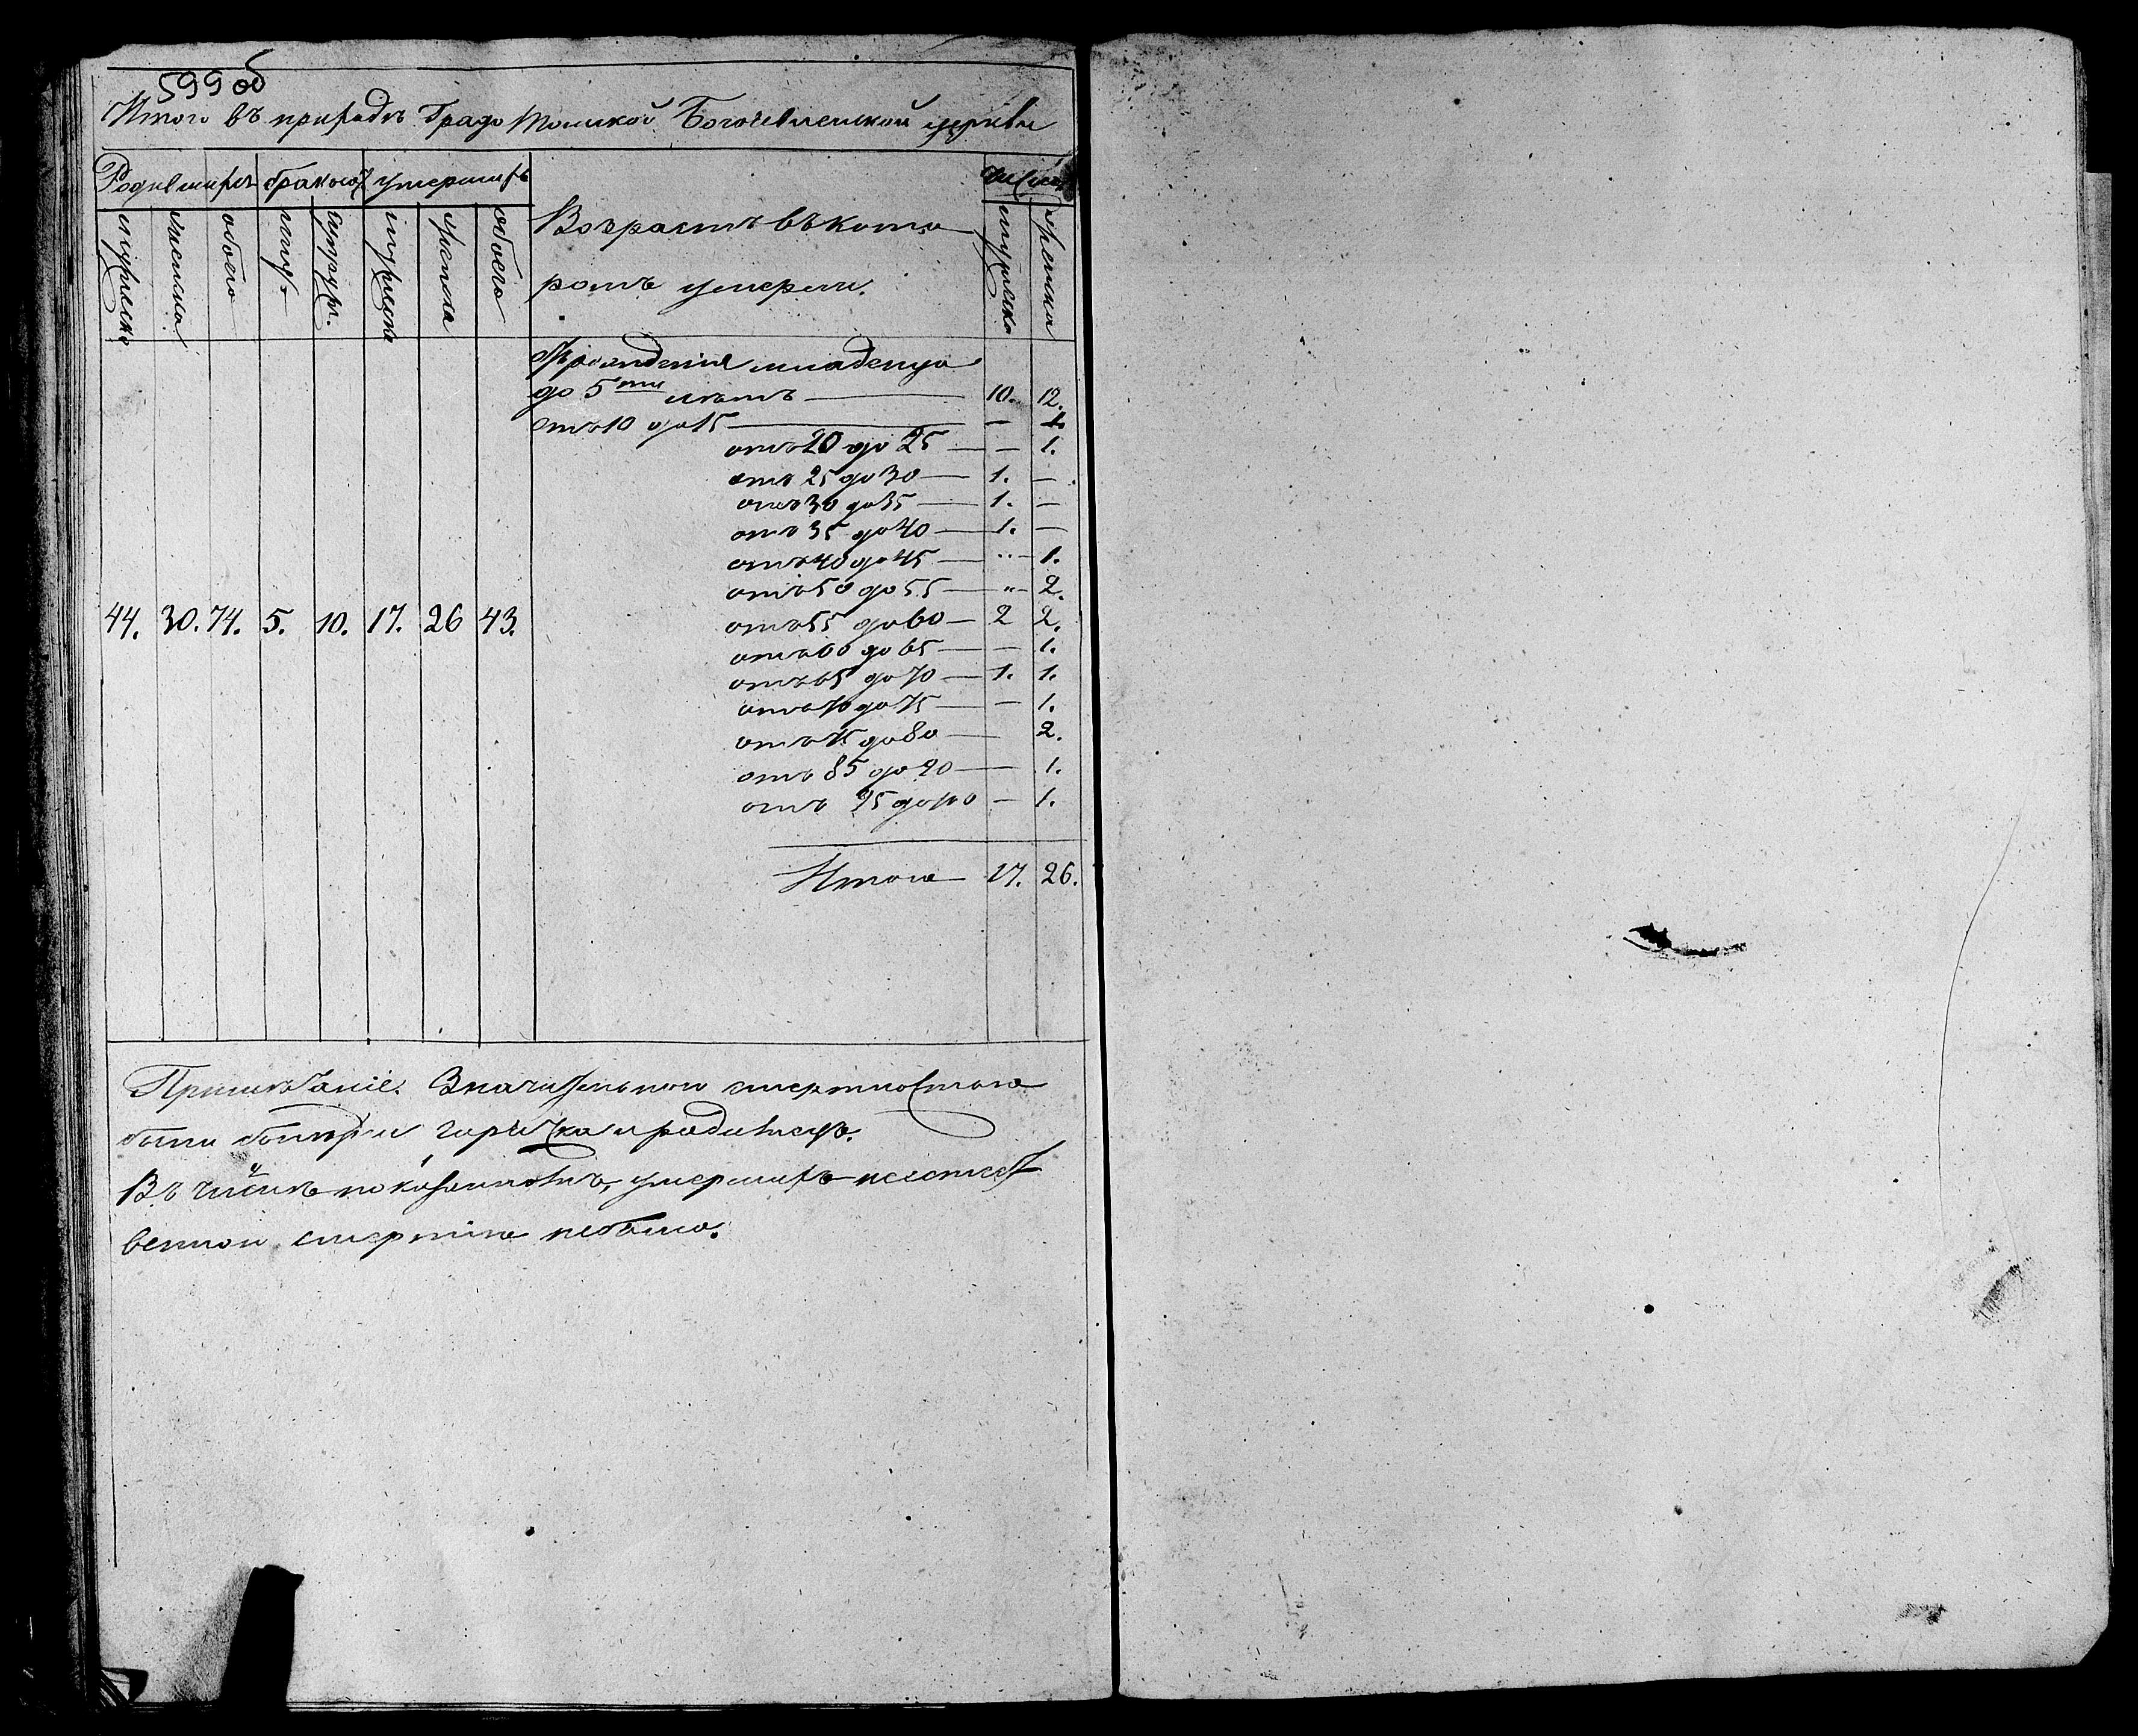 599 об
Итого въ приходѣ Градо Томской Богоявленской церкви
Родившихся браков умершихъ
Число
мужеска
женска
обоего
супруг.
мужеска
женска
обоего
Возрастъ въ кото
ромъ умерли.
мужеска
женска
Отъ рожденія младенца
до 5ти лѣтъ 10. 12.
отъ 10 до 15 — 1.
отъ 20 до 25 — 1.
отъ 25 до 30 1. —
отъ 30 до 35 1. —
отъ 35 до 40 1. —
отъ 40 до 45 „ 1.
отъ 50 до 55 „ 2.
44. 30. 74. 5. 10. 17. 26 43. отъ 55 до 60 2 2.
отъ 60 до 65 — 1.
отъ 65 до 70 1. 1.
отъ 70 до 75 — 1.
отъ 75 до 80 — 2.
отъ 85 до 90 — 1.
отъ 95 до 100 — 1.
Итого 17. 26.
Примѣчаніе. Значительною смертностью
были болѣзни горячка и родимецъ.
Въ числѣ показанныхъ, умершихъ неестест
венной смертію небыло.